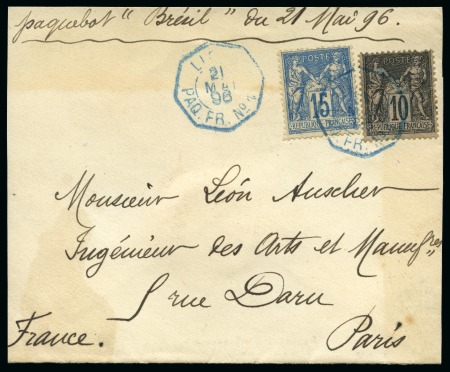 paquebot "Brésil" du 21 Mai 96.
21
MAI
96
PAQ. FR. No
POSTE
15
REPUBLIQUE FRANÇAISE
POSTE
10
REPUBLIQUE FRANÇAISE
FR. No
Monsieur Léon Auscher
Ingénieur des Arts et Manuf res
5 rue Daru
France. Paris